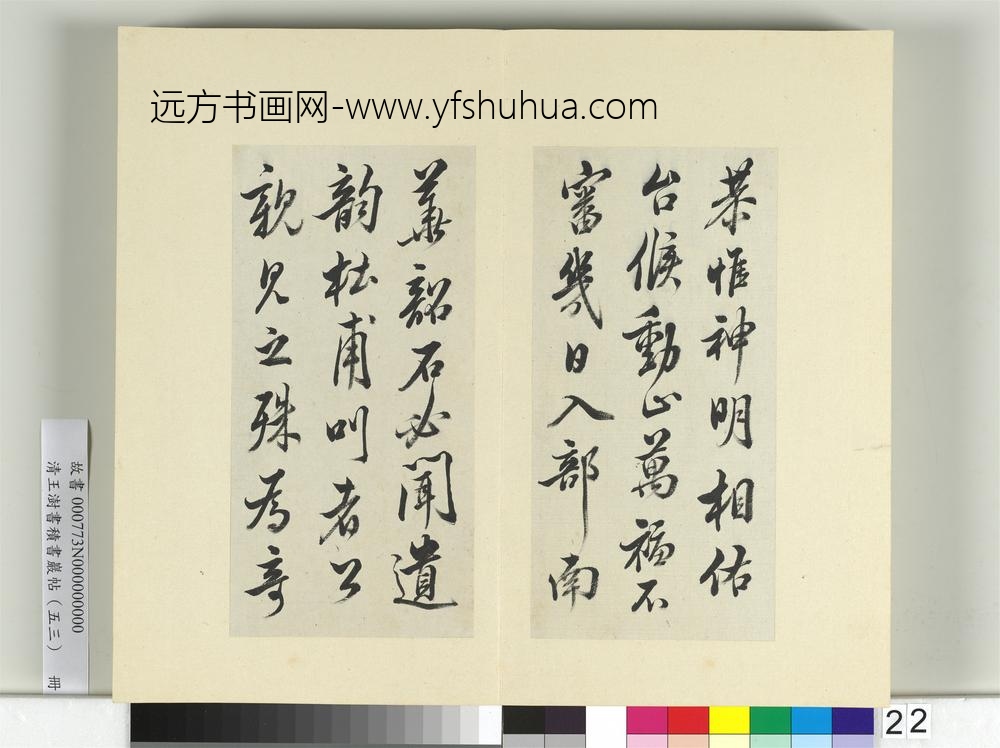 远方书画网-www.yfshuhua.com
恭惟神明相佑
台候動止萬福不
審幾日入部南
華韶石必聞遺
韵杜甫叫者公
親見之殊為奇
故書 000773N000000000
清王澍書積書巖帖(五三) 冊
22